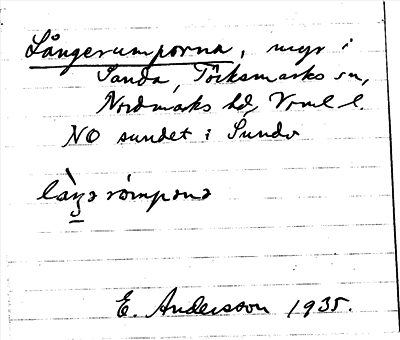 Långerumporna, myr i
Sanda, Töcksmarks sn,
Nordmarks hd, Vrml l.
NO sundet i Sundo
E. Andersson 1935.